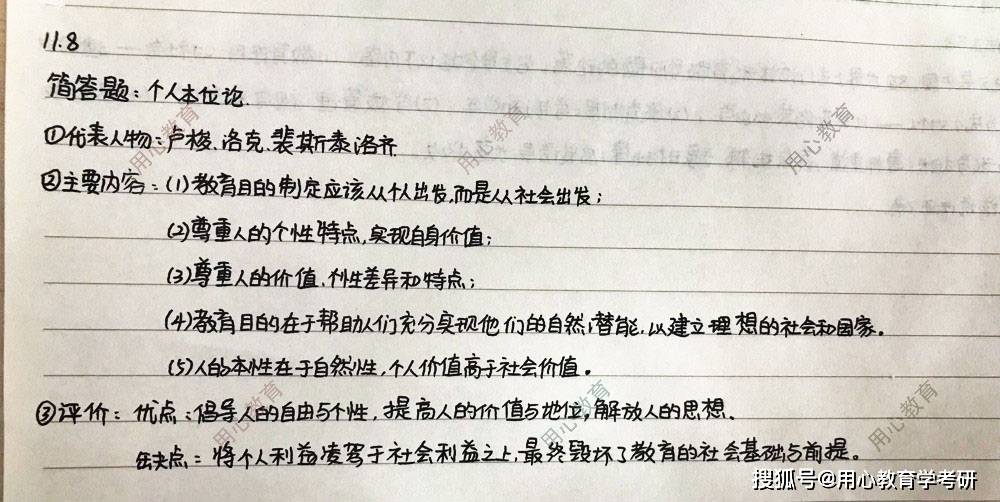 11.8
简答题：个人本位论.
①代表人物：卢梭、洛克、裴斯泰洛齐
②主要内容：(1)教育目的制定应该从个人出发，而是从社会出发；
(2)尊重人的个性特点，实现自身价值；
(3)尊重人的价值、个性差异和特点；
(4)教育目的在于帮助人们充分实现他们的自然潜能，以建立理想的社会和国家。
(5)人的本性在于自然性，个人价值高于社会价值。
③评价：优点：倡导人的自由与个性，提高人的价值与地位，解放人的思想、
缺点：将个人利益凌驾于社会利益之上，最终毁坏了教育的社会基础与前提。
用心教育
用心教育
用心教育
用心教育
用心教育
用心教育
搜狐号@用心教育学考研